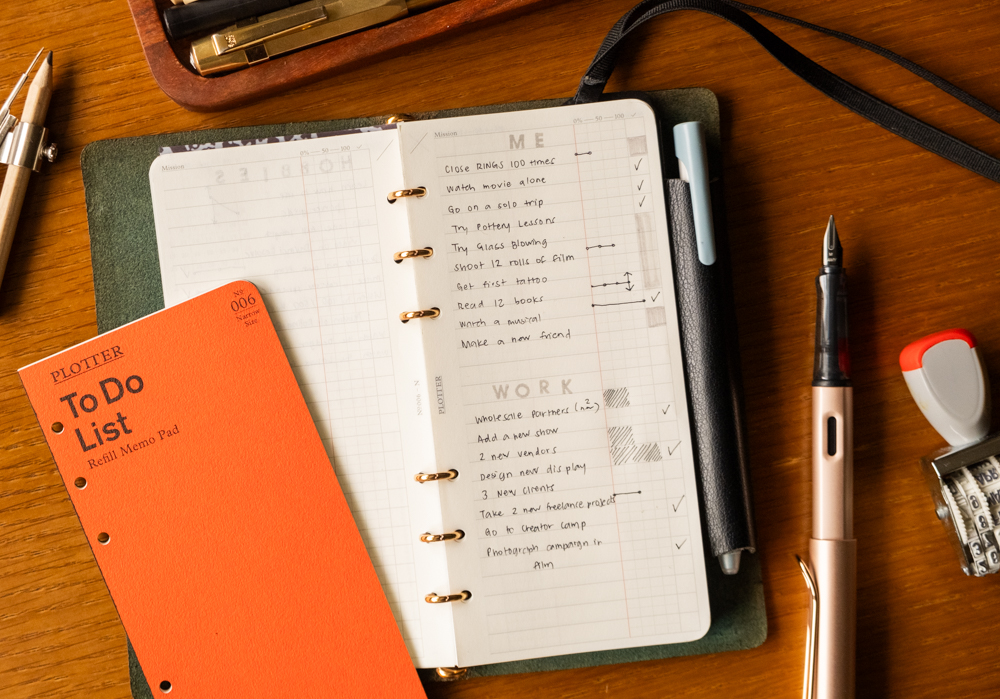 Mission
HOBBIES
Nº
006
Narrow
Size
PLOTTER
To Do
List
Refill Memo Pad
PLOTTER
Mission
0% — 50 — 100 ✓
ME
Close RINGS 100 times ✓
Watch movie alone ✓
Go on a solo trip ✓
Try Pottery Lessons
Try Glass Blowing
Shoot 12 rolls of film
Get first tattoo
Read 12 books ✓
Watch a musical
Make a new friend
WORK
Wholesale Partners (2 new) ✓
Add a new show
2 new vendors ✓
Design new display
3 New Clients
Take 2 new freelance projects ✓
Go to Creator Camp
Photograph campaign in ✓
film